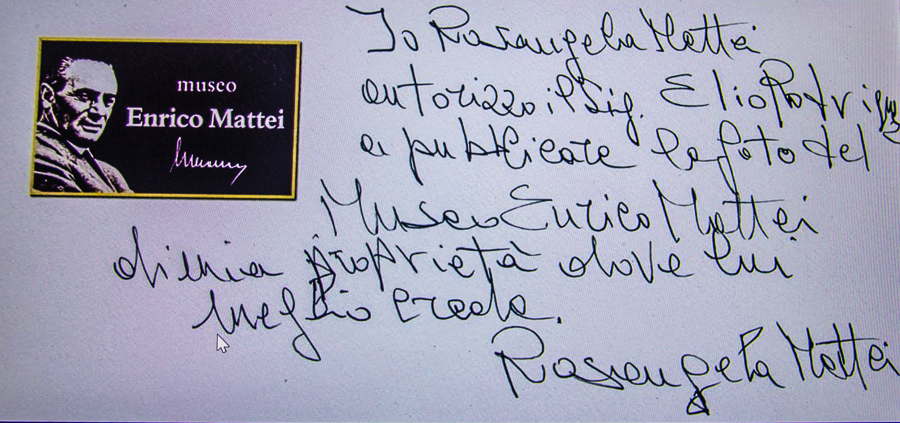 museo
Enrico Mattei
Io Rosangela Mattei
autorizzo il Sig. Elio
a pubblicare le foto del
Museo Enrico Mattei
di mia proprietà dove lui
meglio crede.
Rosangela Mattei